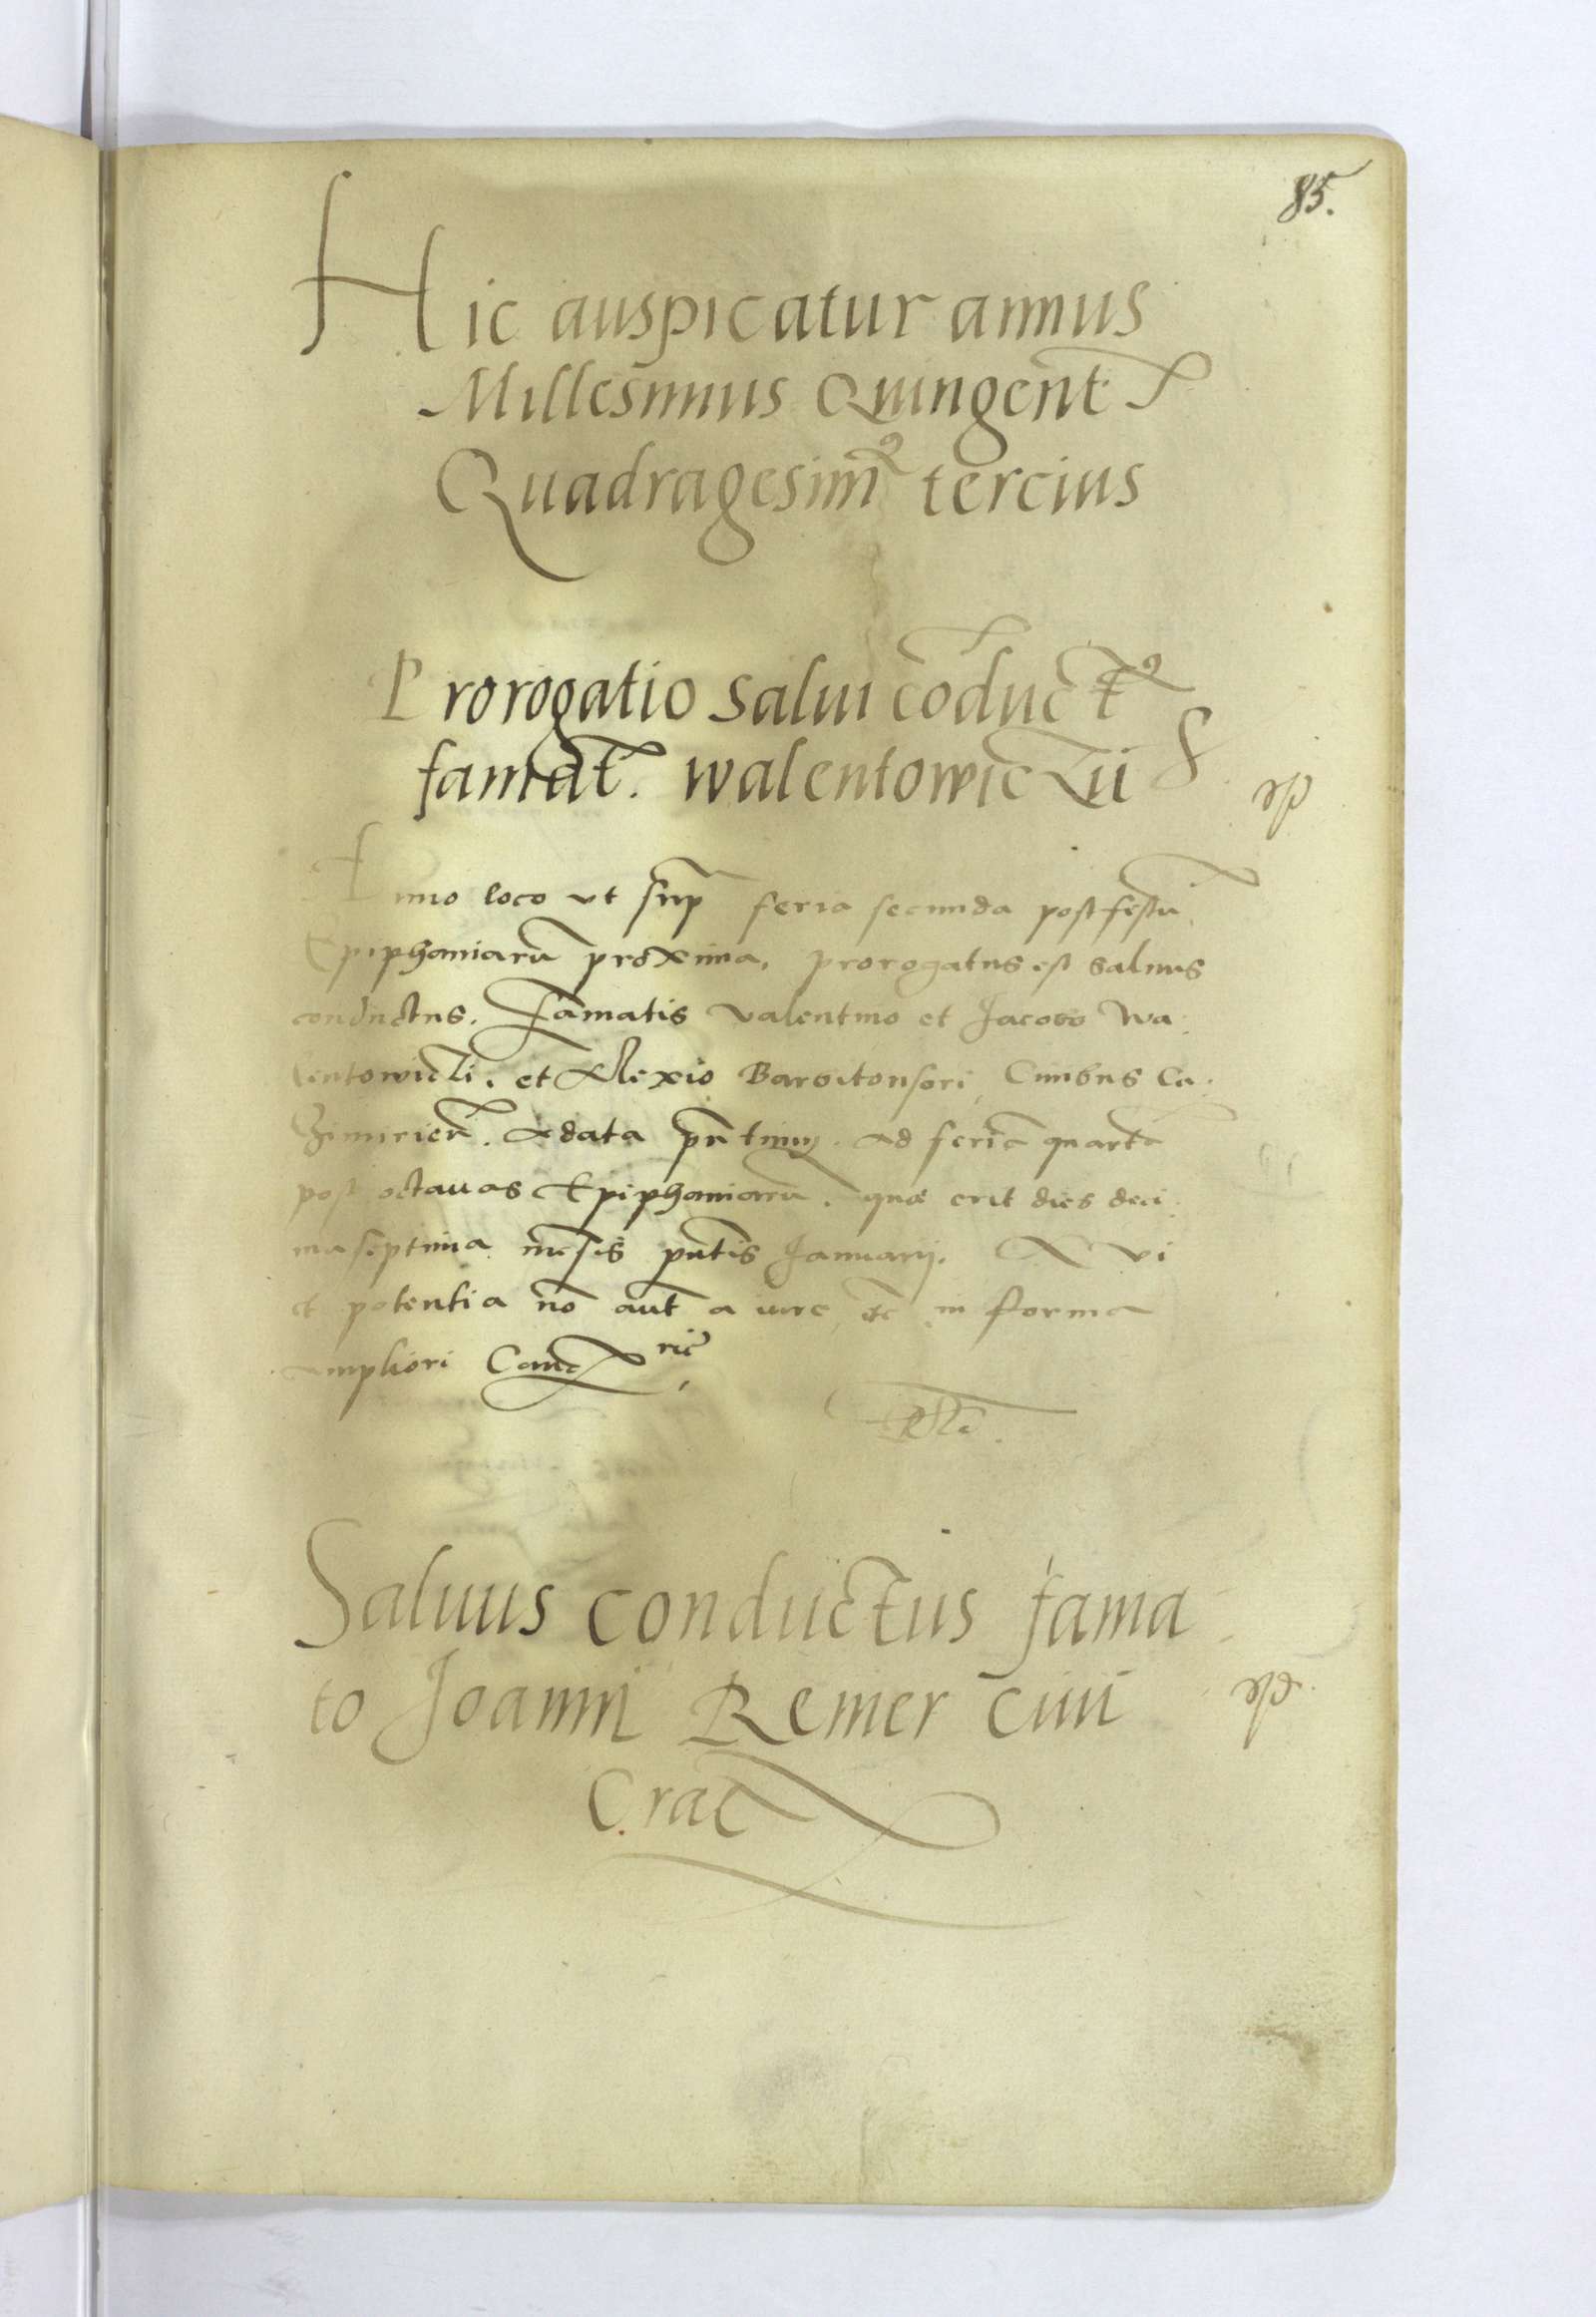 85.
Hic auspicatur annus
Millesimus Quingent
Quadragesim9 tercius
Prorogatio salui cōduct9
famat. walentowiczii
Anno loco vt sup feria secunda post festū
Epiphaniarū proxima, prorogatus est saluus
conductus. Famatis Valentino et Jacobo Wa
lentowiczi. et Alexio Barbitonsori Ciuibus Ca
zimirien. A data pn̄tium. ad feriā quartā
post octauas Epiphaniarū. quae erit dies deci
ma septima mēsis pn̄tis Januarij. A vi
et potentia nō aūt a iure etc in forma
ampliori Canc rie
Saluus conductus fama
to Joanni Remer ciui
Crac